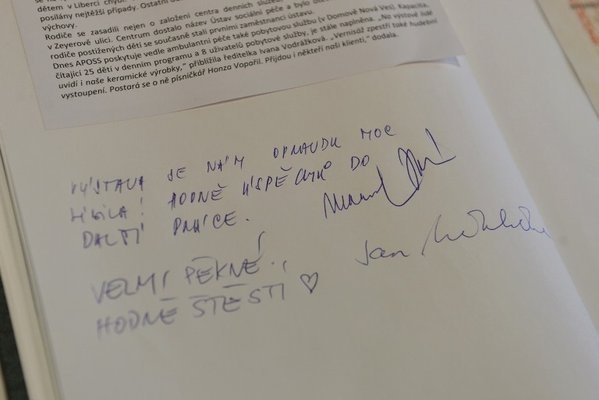 dětem v Liberci chyb
posílány nejtěžší případy. Ostatní
výchovy.
Rodiče se zasadili nejen o založení centra denních služeb
v Zeyerově ulici. Centrum dostalo název Ústav sociální péče a bylo
rodiče postižených dětí se současně stali prvními zaměstnanci ústavu.
Dnes APOSS poskytuje vedle ambulantní péče také pobytovou službu (v Domově Nová Ves). Kapacita,
čítající 25 dětí v denním programu a 8 uživatelů pobytové služby, je stále naplněna. „Na výstavě lidé
uvidí i naše keramické výrobky,“ přiblížila ředitelka Ivana Vodrážková. „Vernisáž zpestří také hudební
vystoupení. Postará se o ně písničkář Honza Vopořil. Přijdou i někteří naši klienti,“ dodala.
VÝSTAVA SE NÁM OPRAVDU MOC
LÍBILA! HODNĚ ÚSPĚCHŮ DO
DALŠÍ PRÁCE.
Jan
VELMI PĚKNÉ!
HODNĚ ŠTĚSTÍ ♡